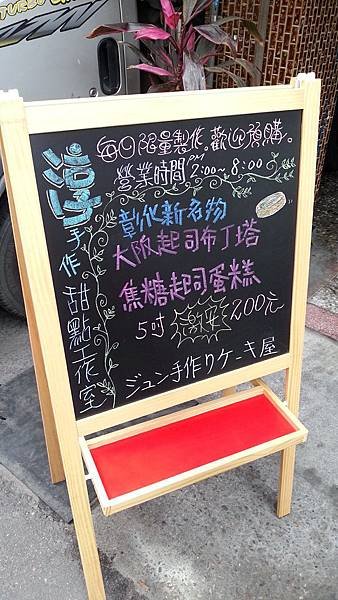 每日限量製作。歡迎預購。
營業時間 PM 2:00~8:00
彰化新名物
大阪起司布丁塔
焦糖起司蛋糕
5吋 激起 200元
ジュン手作りケーキ屋
手作甜點工作室
TURBO